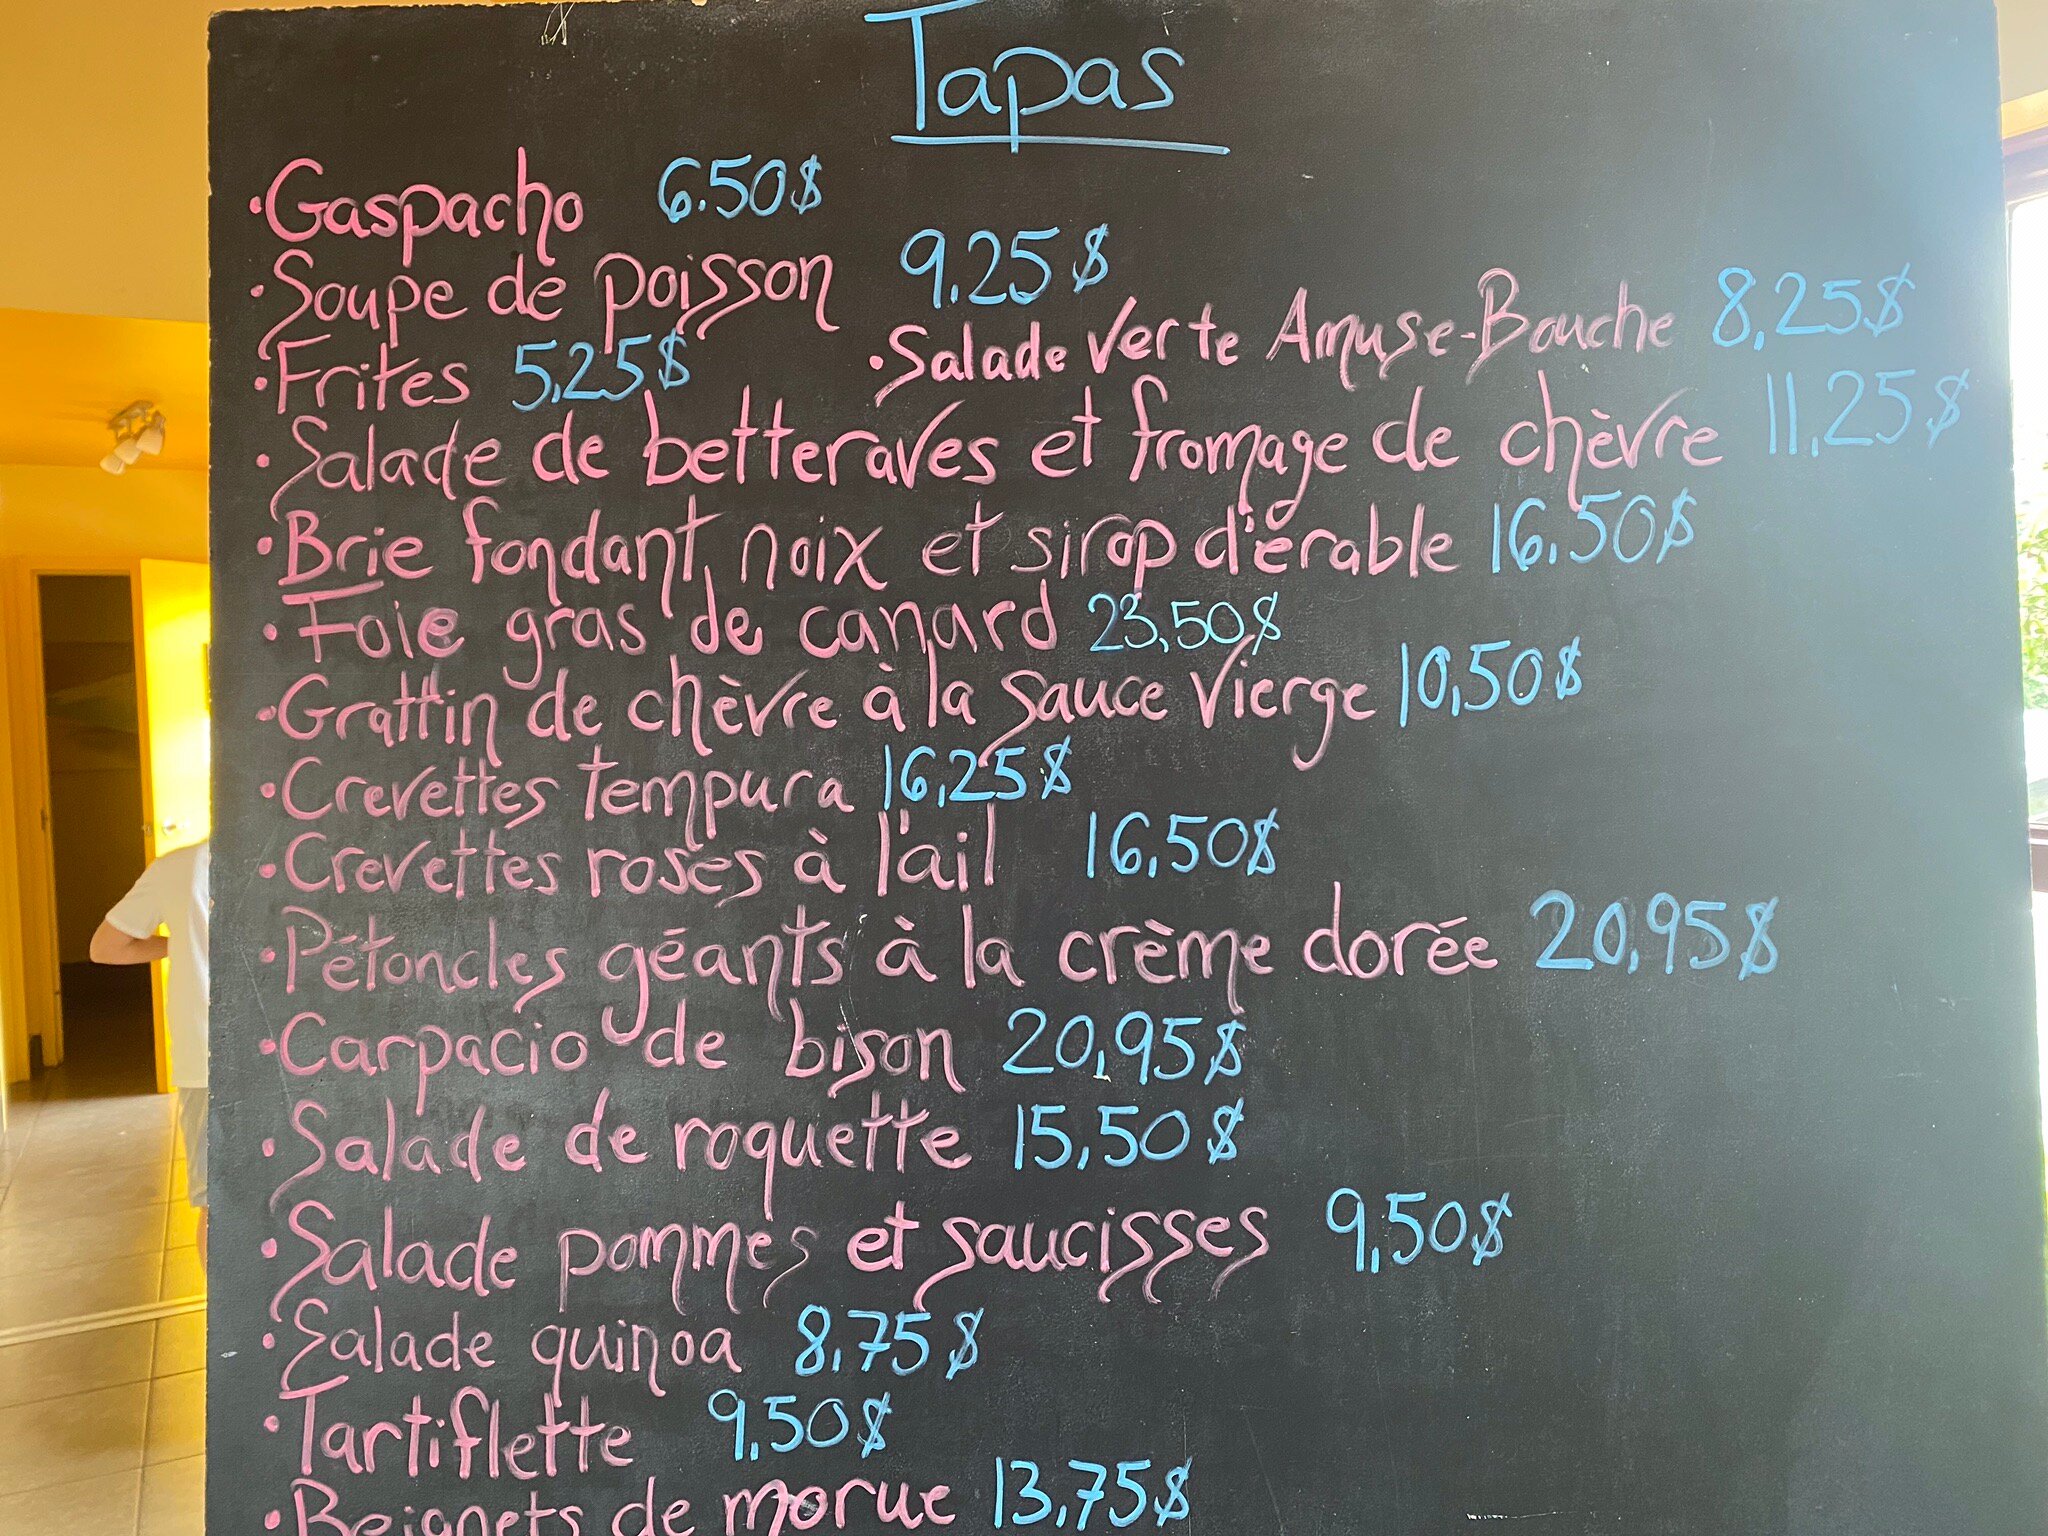 Tapas
•Gaspacho 6.50$
•Soupe de poisson 9.25$
•Frites 5,25$ •Salade verte Amuse-Bouche 8,25$
•Salade de betteraves et fromage de chèvre 11,25$
•Brie fondant, noix et sirop d'érable 16.50$
•Foie gras de canard 23,50$
•Grattin de chèvre à la sauce Vierge 10,50$
•Crevettes tempura 16,25$
•Crevettes roses à l'ail 16,50$
•Pétoncles géants à la crème dorée 20,95$
•Carpacio de bison 20,95$
•Salade de roquette 15,50$
•Salade pommes et saucisses 9,50$
•Salade quinoa 8,75$
•Tartiflette 9,50$
•Beignets de morue 13,75$